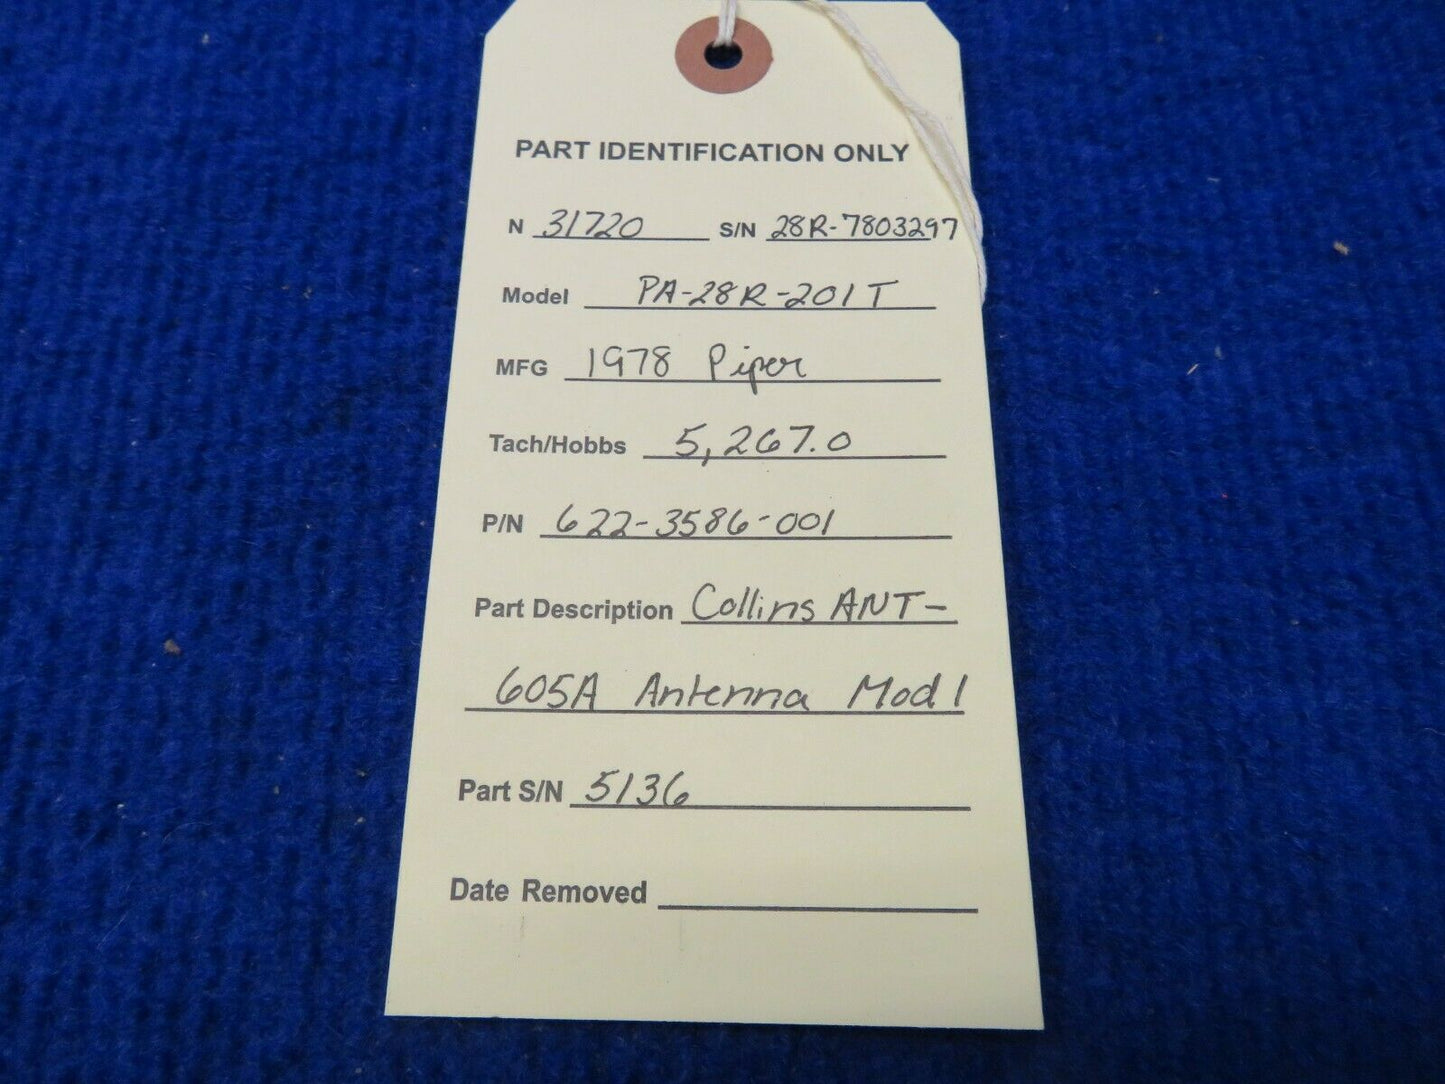 PART IDENTIFICATION ONLY
N 31720 S/N 28R-7803297
Model PA-28R-201T
MFG 1978 Piper
Tach/Hobbs 5,267.0
P/N 622-3586-001
Part Description Collins ANT-
605A Antenna Mod 1
Part S/N 5136
Date Removed